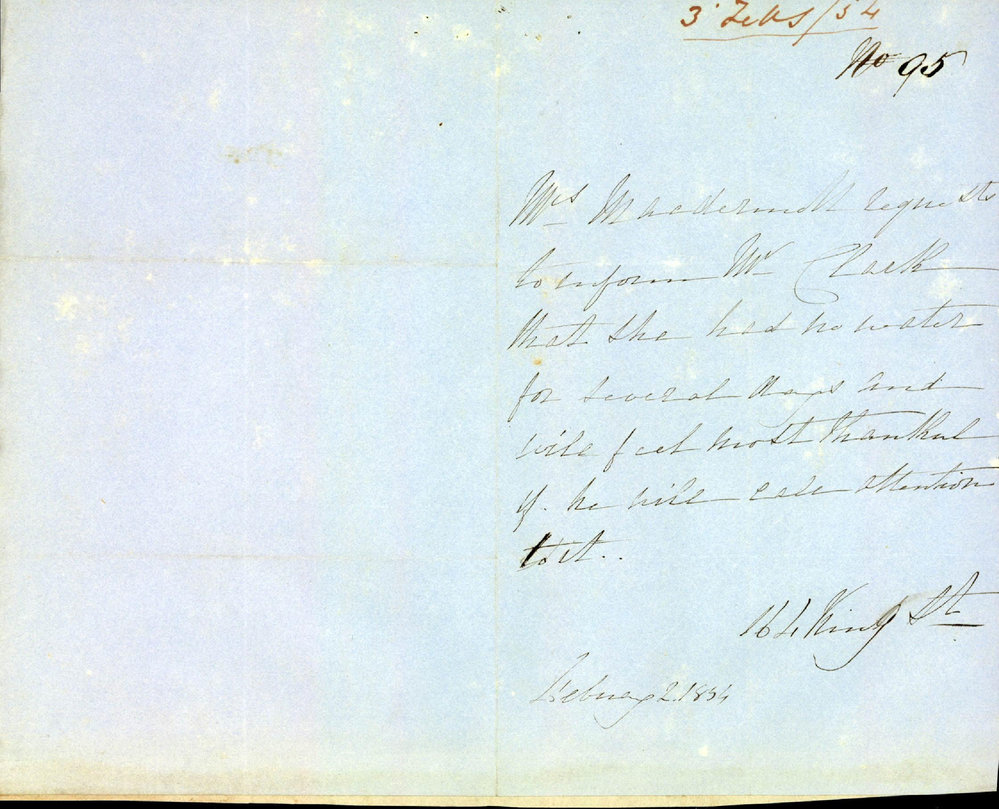 3 Feby/54
No 95
Mrs Macdermott requests
to inform Mr Clark
that she had no water
for several days and
will feel most thankful
if he will call attention
to it..
164 King St
Febuary 2. 1854